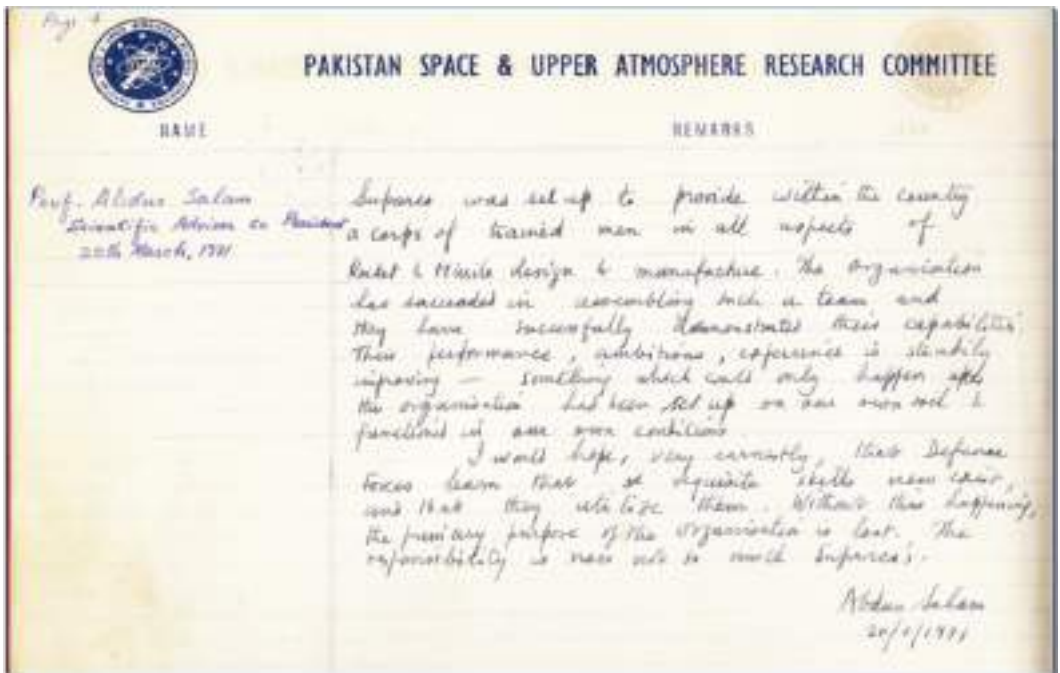 Page 4
PAKISTAN SPACE & UPPER ATMOSPHERE RESEARCH COMMITTEE
NAME REMARKS
Prof. Abdus Salam
Scientific Advisor to President
20th March, 1971
Suparco was set up to provide within the country
a corps of trained men in all aspects of
Rocket & Missile design & manufacture. The Organisation
has succeeded in assembling such a team and
they have successfully demonstrated their capabilities.
Their performance, ambitions, experience is steadily
improving — something which could only happen after
the organisation had been set up on our own soil &
functioned in our own conditions.
I would hope, very earnestly, that Defence
Forces learn that requisite skills now exist,
and that they utilize them. Without this happening,
the primary purpose of the Organisation is lost. The
responsibility is now not so much Suparco's.
Abdus Salam